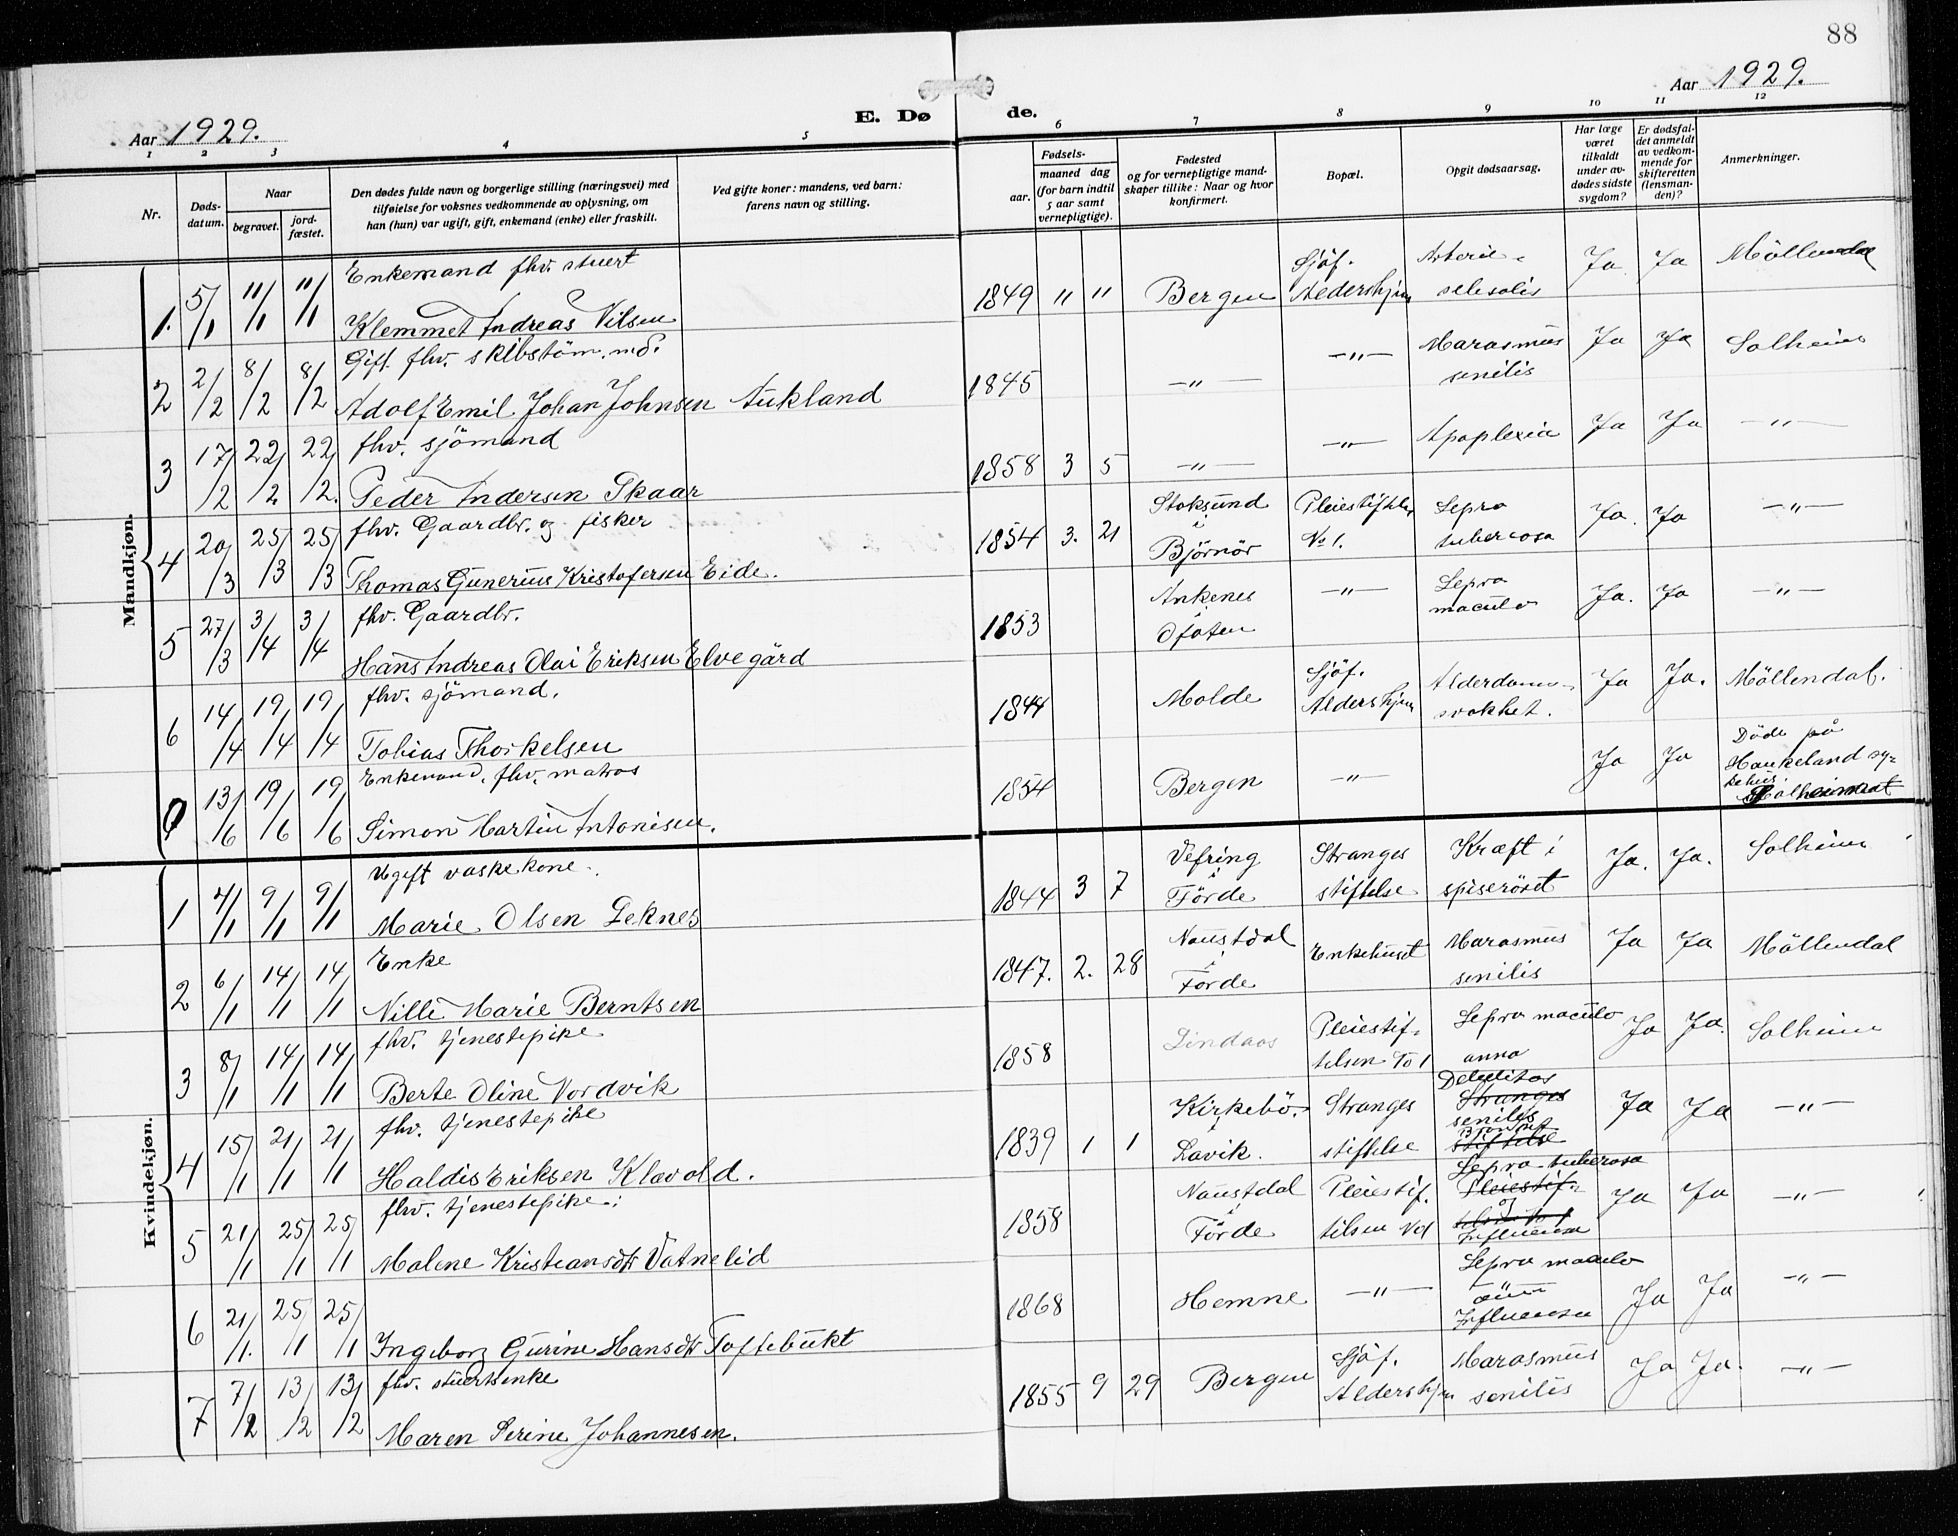 88
Aar 1929.
E. Døde.
Aar 1929.
1 2 3 4 5 6 7 8 9 10 11 12
Nr.
Døds-datum.
Naar
begravet.
jord-fæstet.
Den dødes fulde navn og borgerlige stilling (næringsvei) med
tilføielse for voksnes vedkommende av oplysning, om
han (hun) var ugift, gift, enkemand (enke) eller fraskilt.
Ved gifte koner: mandens, ved barn:
farens navn og stilling.
Fødsels-
aar.
maaned dag
(for barn indtil
5 aar samt
vernepligtige).
Fødested
og for vernepligtige mand-
skaper tillike: Naar og hvor
konfirmert.
Bopæl.
Opgit dødsaarsag.
Har læge
været
tilkaldt
under av-
dødes sidste
sygdom?
Er dødsfal-
det anmeldt
av vedkom-
mende for
skifteretten
(lensman-
den)?
Anmerkninger.
Mandkjøn.
Enkemand fhv. stuert
1. 5/1 11/1 11/1 Klemmet Andreas Nilsen 1849 " " Bergen Sjöf. Aldershjem Arterie-sclerolis Ja Ja Möllendal
Gift. fhv. skibstöm.md.
2 2/2 8/2 8/2 Adolf Emil Johan Johnsen Aukland 1845 —"— —"— Marasmus senilis Ja Ja Solheim
fhv. sjömand
3 17/2 22/2 22/2. Peder Andersen Skaar 1858 3 5 —"— —"— Apoplexia Ja Ja —"—
fhv. Gaardbr. og fisker
4 20/3 25/3 25/3 Thomas Gunerius Kristofersen Eide. 1854 3. 21 Stoksund i Björnör Pleiestiftelsen No 1. Lepra tuberosa Ja. Ja —"—
fhv. Gaardbr.
5 27/3 3/4 3/4 Hans Andreas Olai Eriksen Elvegård 1853 Ankenes i Ofoten —"— Lepra maculo Ja. Ja —"—
fhv. sjömand.
6 14/4 19/4 19/4 Tobias Thorkelsen 1844 Molde Sjöf. Aldershjem Alderdoms-svakhet. Ja Ja. Möllendal.
Enkemand, fhv. matros
13/6 19/6 19/6 Simon Martin Antonisen. 1854 Bergen —"— Ja Ja Döde på Haukeland sy-kehus.
Kvindekjøn.
Ugift vaskekone.
1 4/1 9/1 9/1 Marie Olsen Leknes 1844 3 7 Vefring i Förde Stranges stiftelse Kræft i spiseröret Ja. Ja. Solheim
Enke
2 6/1 14/1 14/1 Nille Marie Berntsen 1847. 2. 28 Naustdal i Förde Enkehuset Marasmus senilis Ja Ja Möllendal
fhv. tjenestepike
3 8/1 14/1 14/1 Berte Oline Nordvik 1858 Lindaas Pleiestif-telsen No 1 Lepra maculo anna Ja Ja. Solheim
fhv. tjenestepike
4 15/1 21/1 21/1 Haldis Eriksen Klævold. 1839 1 1 Kirkebö. i Lavik. Stranges stiftelse Debilitas Stranges senilis stiftelse Ja Ja —"—
fhv. tjenestepike.
5 21/1 25/1 25/1 Malene Kristiansdtr Vatnelid 1858 Naustdal i Förde Pleiestif. telsen No 1 Lepra tuberosa Pleiestif- og telsen No 1 Influensa Ja Ja —"—
6 21/1. 25/1 25/1 Ingeborg Gurine Hansdtr Toftebukt 1868 Hemne —"— Lepra maculo Influensa Ja Ja —"—
fhv. stuertsenke
7 7/2 13/2 13/2 Maren Serine Johannesen. 1855 9 29 Bergen Sjöf. Aldershjem Marasmus senilis Ja Ja. —"—